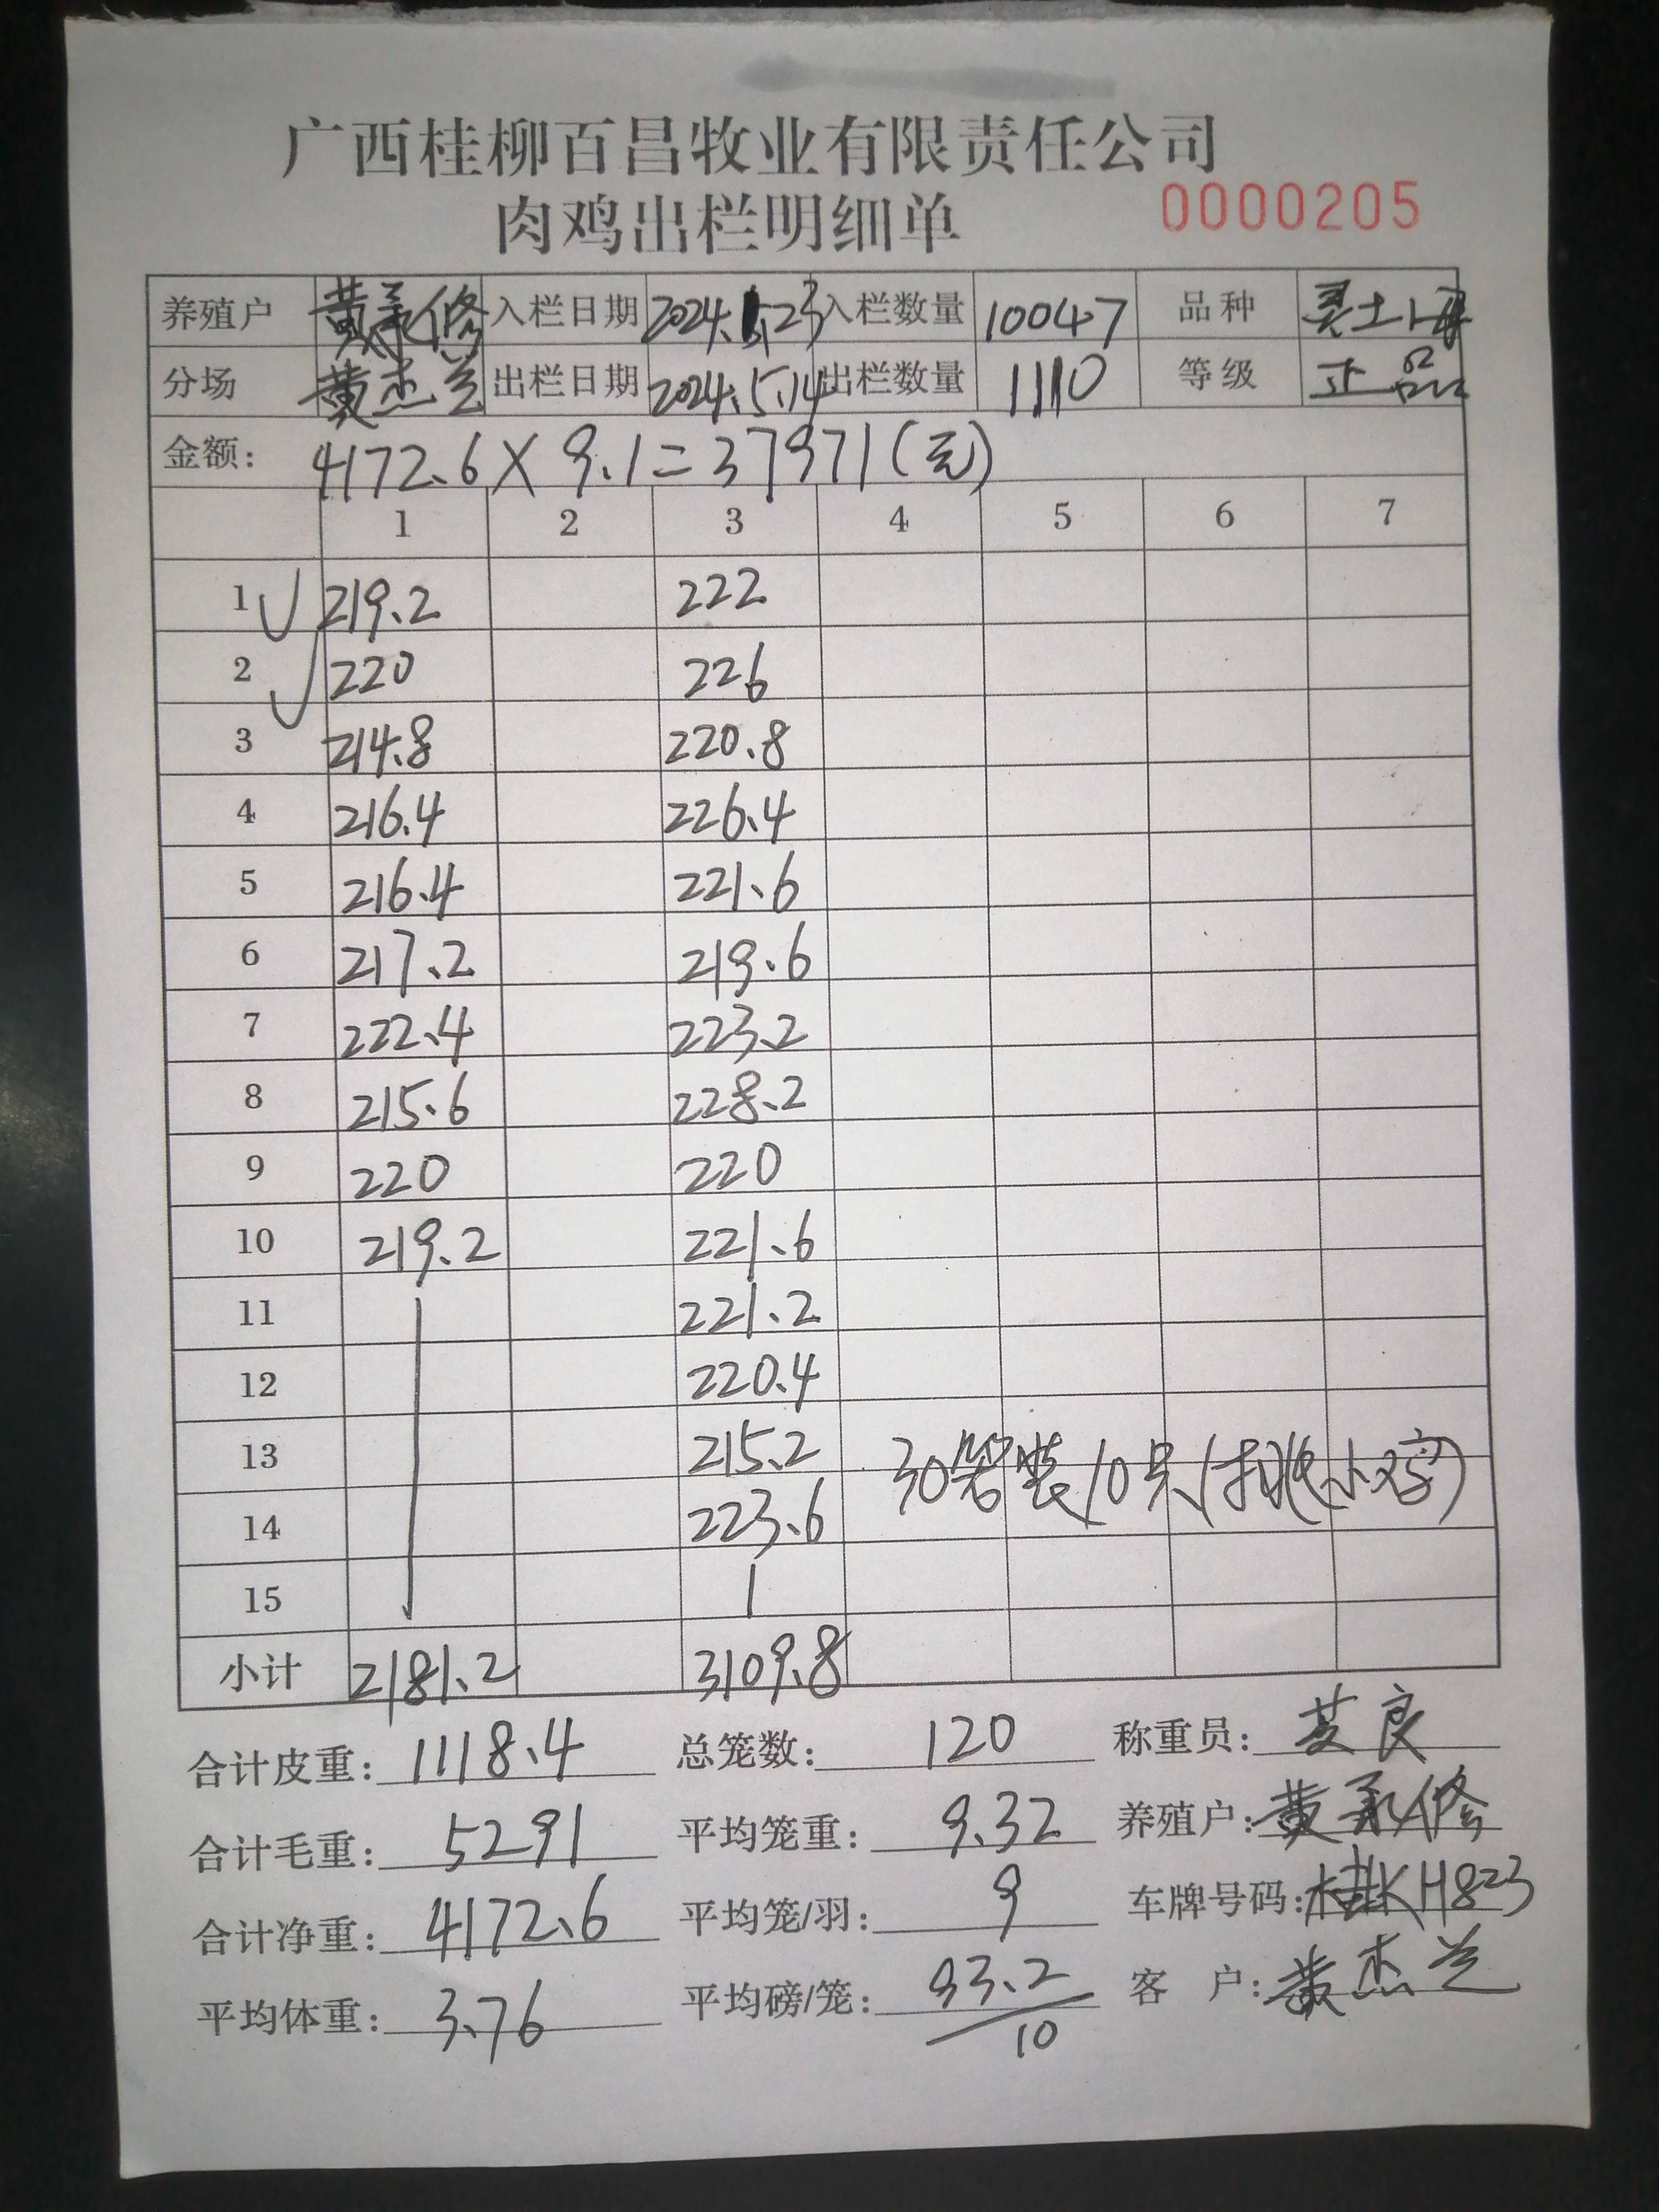 广西桂柳百昌牧业有限责任公司
肉鸡出栏明细单 0000205
养殖户 黄承修 入栏日期 2024.1.23 入栏数量 10047 品种
分场 黄杰兰 出栏日期 2024.5.14 出栏数量 1110 等级 正品
金额: 4172.6×9.1=37971(元)
1 2 3 4 5 6 7
1 219.2 222
2 220 226
3 214.8 220.8
4 216.4 226.4
5 216.4 221.6
6 217.2 219.6
7 222.4 223.2
8 215.6 228.2
9 220 220
10 219.2 221.6
11 221.2
12 220.4
13 215.2 30笼装10只(挑小公)
14 223.6
15
小计 2181.2 3109.8
合计皮重: 1118.4 总笼数: 120 称重员: 良
合计毛重: 5291 平均笼重: 9.32 养殖户: 黄承修
合计净重: 4172.6 平均笼/羽: 9 车牌号码: 桂KH823
平均体重: 3.76 平均磅/笼: 93.2/10 客户: 黄杰兰